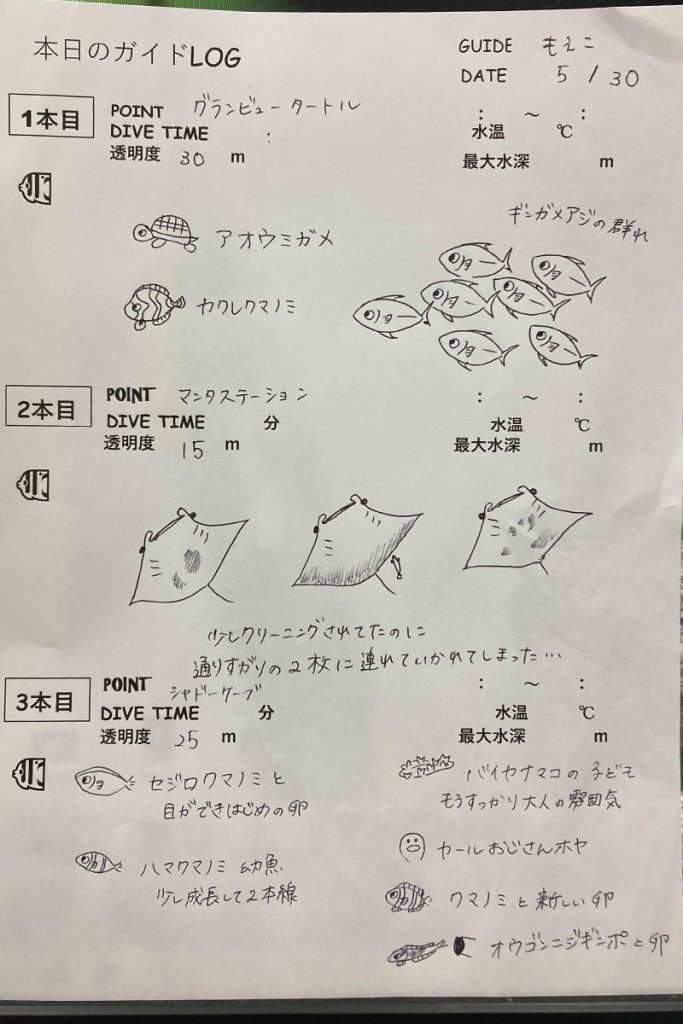 本日のガイドLOG
GUIDE もえこ
DATE 5 / 30
1本目
POINT グランビュータートル
DIVE TIME :
: ～ :
水温 ℃
透明度 30 m
最大水深 m
アオウミガメ
ギンガメアジの群れ
カクレクマノミ
2本目
POINT マンタステーション
: ～ :
DIVE TIME 分
水温 ℃
透明度 15 m
最大水深 m
少しクリーニングされてたのに
通りすがりの2枚に連れていかれてしまった…
3本目
POINT シャドーケーブ
: ～ :
DIVE TIME 分
水温 ℃
透明度 25 m
最大水深 m
セジロクマノミと
目ができはじめの卵
バイカナマコの子ども
もうすっかり大人の雰囲気
ハマクマノミ 幼魚
少し成長して2本線
カールおじさんホヤ
クマノミと新しい卵
オウゴンニジギンポと卵